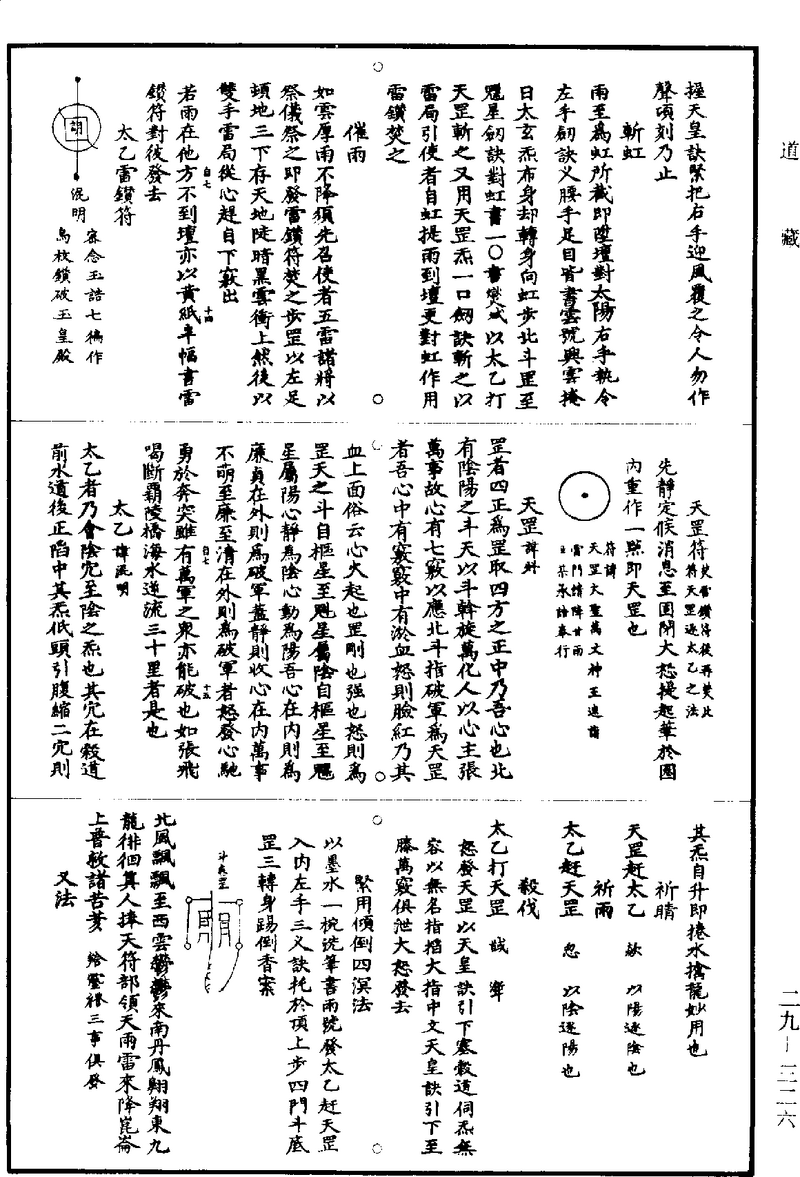 道藏
握天皇訣緊把右手迎風覆之令人勿作
聲頃刻乃止
斬虹
雨至為虹所截即陞壇對太陽右手執令
左手劒訣义腰手足目皆書雲號興雲掩
日太玄炁布身却轉身向虹步北斗罡至
魁星劒訣對虹書一〇書煞以太乙打
天罡斬之又用天罡炁一口劒訣斬之以
雷局引使者自虹提雨到壇更對虹作用
雷鑽焚之
催雨
如雲厚雨不降須先召使者五雷諸將以
祭儀祭之即發雷鑽符焚之步罡以左足
頓地三下存天地陡時黑雲衝上然後以
雙手雷局從心趕自下竅出
若雨在他方不到壇亦以黃紙半幅書雷
鑽符對彼發去
白七
十四
太乙雷鑽符
胡
混明
審念玉誥七徧作
烏枚鑽破玉皇殿
天罡符
焚雷鑽符後再焚此
符天罡逐太乙之法
先靜定候消息至固閉大怒提起筆於圈
內重作一點即天罡也
符諱
天罡大聖萬丈神王速詣
雷門請降甘雨
主某承誥奉行
天罡
罡者四正為罡取四方之正中乃吾心也北
有陰陽之斗天以斗斡旋萬化人以心主張
萬事故心有七竅以應北斗指破軍為天罡
者吾心中有竅竅中有淤血怒則臉紅乃其
血上面俗云心火起也罡剛也强也怒則為
罡天之斗自樞星至魁星屬陰自樞星至魒
星屬陽心靜為陰心動為陽吾心在內則為
廉貞在外則為破軍蓋靜則收心在內萬事
不萌至廉至清在外則為破軍者怒發心馳
勇於奔突雖有萬軍之衆亦能破也如張飛
喝斷霸陵橋海水逆流三十里者是也
白七
十五
太乙 諱混明
太乙者乃會陰穴至陰之炁也其穴在穀道
前水道後正陷中其炁低頭引腹縮二穴則
其炁自升即捲水擒龍妙用也
祈晴
天罡赶太乙 歛 以陽逐陰也
祈雨
太乙赶天罡 忽 以陰逐陽也
殺伐
太乙打天罡
怒發天罡以天皇訣引下塞穀道伺炁無
容以無名指掐大指中文天皇訣引下至
膝萬竅俱泄大怒發去
緊用傾倒四溟法
以墨水一椀洗筆書雨號發太乙赶天罡
入內左手三义訣托於頂上步四門斗底
罡三轉身踢倒香案
北風飄飄至西雲鬱鬱來南丹鳳翱翔東九
龍徘徊真人捧天符部領天雨雷來降崑崙
上普救諸苦荄
又法
二九—三二六